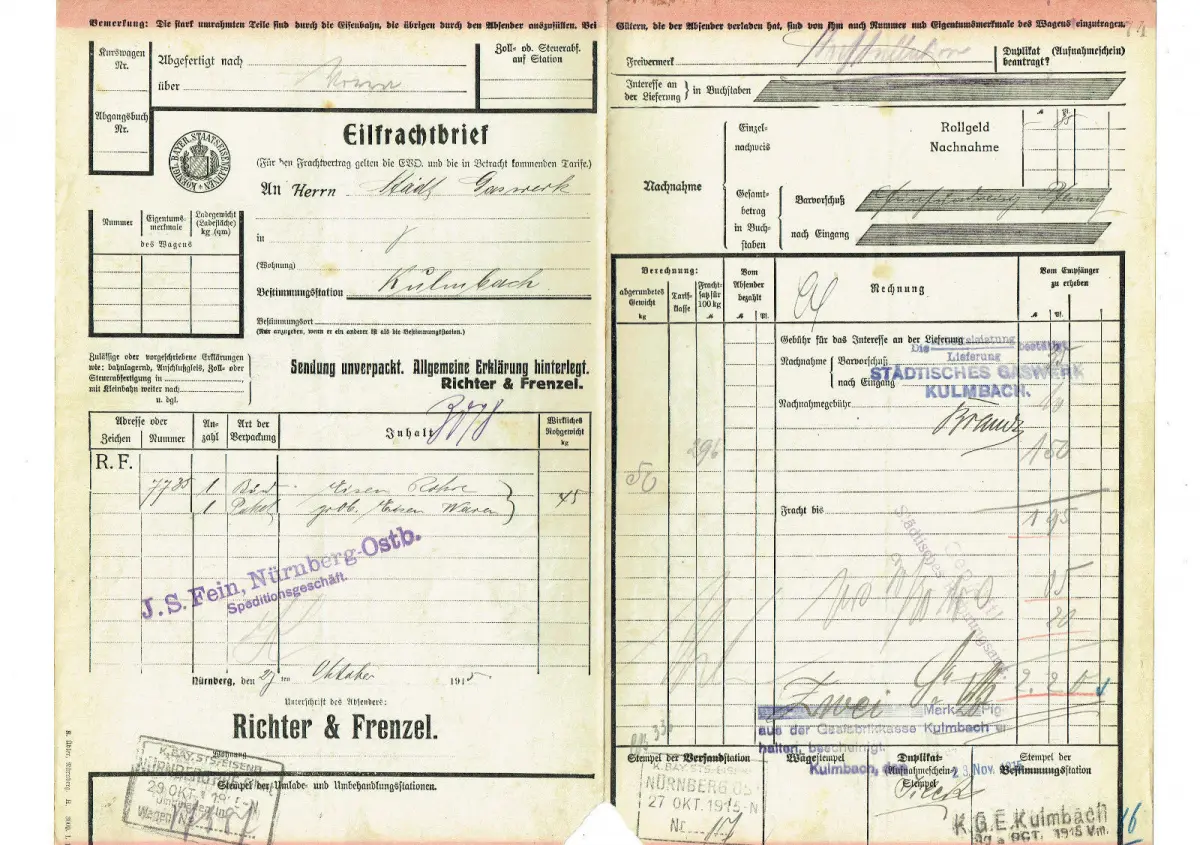 Bemerkung: Die stark umrahmten Teile sind durch die Eisenbahn, die übrigen durch den Absender auszufüllen. Bei
Kurswagen
Nr.
Abgefertigt nach
über
Zoll- od. Steuerabf.
auf Station
Abgangsbuch
Nr.
KOENIGL. BAYER. STAATSEISENBAHNEN
Eilfrachtbrief
(Für den Frachtvertrag gelten die EVO. und die in Betracht kommenden Tarife.)
An Herrn Städt Gaswerk
in
(Wohnung)
Bestimmungsstation Kulmbach
Bestimmungsort
(Nur anzugeben, wenn er ein anderer ist als die Bestimmungsstation.)
Nummer
Eigentums-
merkmale
Ladegewicht
(Ladefläche)
kg (qm)
des Wagens
Zulässige oder vorgeschriebene Erklärungen
wie: bahnlagernd, Anschlußgleis, Zoll- oder
Steuerabfertigung in
mit Kleinbahn weiter nach
u. dgl.
Sendung unverpackt. Allgemeine Erklärung hinterlegt.
Richter & Frenzel.
Adresse oder
Zeichen Nummer
An-
zahl
Art der
Verpackung
Inhalt
Wirkliches
Rohgewicht
kg
R. F.
7735 1 Büd Eisen Rohre
1 Paket grob. Eisen Waren 45
J. S. Fein, Nürnberg-Ostb.
Speditionsgeschäft.
Nürnberg, den 27 ten Oktober 1915
Unterschrift des Absenders:
Richter & Frenzel.
Wohnung
Stempel der Umlade- und Umbehandlungsstationen.
K. BAY. STS. EISENB.
29 OKT. 1915-N
Umladestelle
Wagen Nr.
Gütern, die der Absender verladen hat, sind von ihm auch Nummer und Eigentumsmerkmale des Wagens einzutragen.
Freivermerk
Duplikat (Aufnahmeschein)
beantragt?
Interesse an
der Lieferung
in Buchstaben
Nachnahme
Einzel-
nachweis
Rollgeld
Nachnahme
85
Gesamt-
betrag
in Buch-
staben
Barvorschuß
nach Eingang
Berechnung:
abgerundetes
Gewicht
kg
Tarif-
klasse
Fracht-
satz für
100 kg
Vom
Absender
bezahlt
Rechnung
Vom Empfänger
zu erheben
Gebühr für das Interesse an der Lieferung
Nachnahme
Barvorschuß
nach Eingang
Nachnahmegebühr
Die Lieferung bestätigt
STÄDTISCHES GASWERK
KULMBACH.
10
296
50
150
Fracht bis
195
85
20
2.20
Zwei
Mark Pfg
aus der Gasfabrikkasse Kulmbach er
halten, bescheinigt.
Kulmbach, den 23. Nov. 1915
Stempel der Versandstation
Wagestempel
Duplikat-
(Aufnahmeschein-)
Stempel
Stempel der
Bestimmungsstation
K. BAY. STS. EISENB.
NÜRNBERG OST
27 OKT. 1915-N
Nr. 17
K.G.E. Kulmbach
OCT. 1915 Vm.